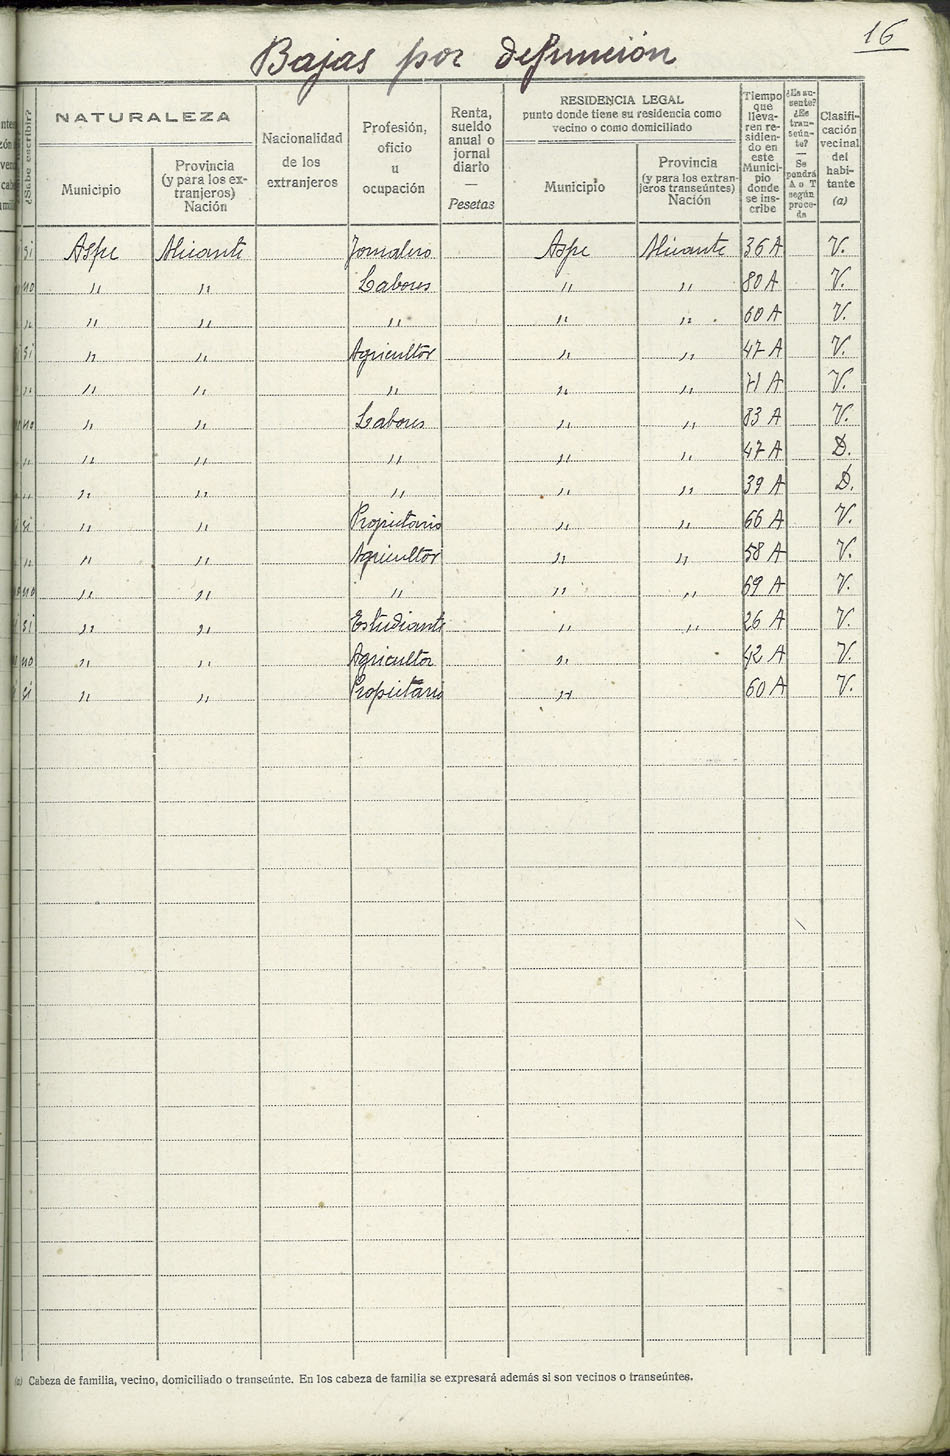 16
Bajas por defunción
¿Sabe escribir?
NATURALEZA
Municipio
Provincia (y para los ex-tranjeros) Nación
Nacionalidad de los extranjeros
Profesión, oficio u ocupación
Renta, sueldo anual o jornal diario — Pesetas
RESIDENCIA LEGAL
punto donde tiene su residencia como
vecino o como domiciliado
Municipio
Provincia (y para los extran-jeros transeúntes) Nación
Tiempo que lleva-ren re-sidien-do en este Munici-pio donde se ins-cribe
¿Es au-sente? ¿Es tran-seún-te? — Se pondrá A o T según proce-da
Clasifi-cación vecinal del habi-tante (a)
si Aspe Alicante Jornalero Aspe Alicante 36 A V.
no " " Labores " " 80 A V.
" " " " " " 60 A V.
si " " Agricultor " " 47 A V.
" " " " " " 71 A V.
no " " Labores " " 83 A V.
" " " " " " 47 A D.
" " " " " " 39 A D.
si " " Propietario " " 66 A V.
" " " Agricultor " " 58 A V.
no " " " " " 69 A V.
si " " Estudiante " " 26 A V.
no " " Agricultor " 42 A V.
si " " Propietario " 60 A V.
(a) Cabeza de familia, vecino, domiciliado o transeúnte. En los cabeza de familia se expresará además si son vecinos o transeúntes.